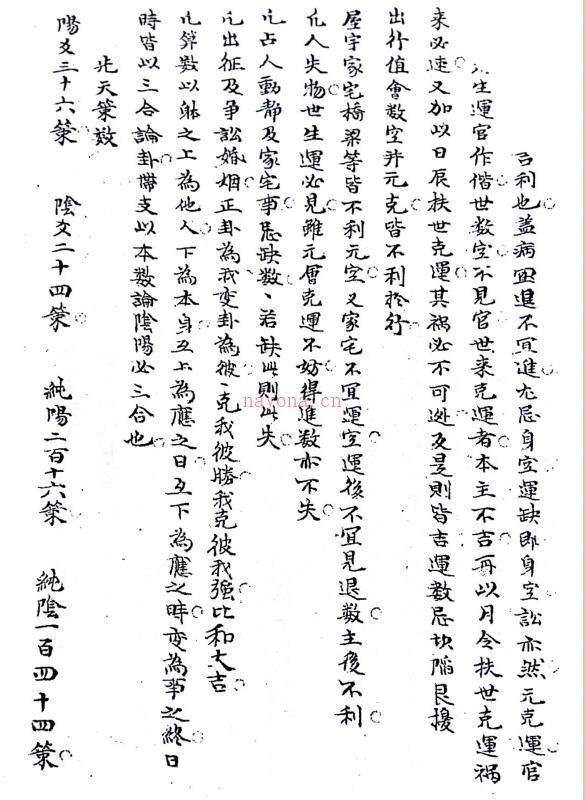 吉利也蓋病宜進不宜進尤忌身空運缺即身空訟亦然元克運官
生運官作偕世数空不見官世来克運者本主不吉再以月令扶世克運禍
来必速又加以日辰扶世克運其禍必不可逃反是則皆吉運数忌坎陷艮擾
出行值會数空并元克皆不利於行
屋宇家宅橋梁等皆不利元空又家宅不宜運空運後不宜見退数主後不利
凡人失物世生運必見雖元會克運不妨得進数亦不失
凡占人動静及家宅事忌缺数、若缺此則此失
凡出征及爭訟婚姻正卦為我变卦為彼、克我彼勝我克彼我強比和大吉
凡算数以躰之上為他人下為本身互上為應之日互下為應之時变為事之終日
時皆以三合論卦帶支以本数論陰陽必三合也
先天策数
陽爻三十六策 陰爻二十四策 純陽二百十六策 純陰一百四十四策
nayona.cn